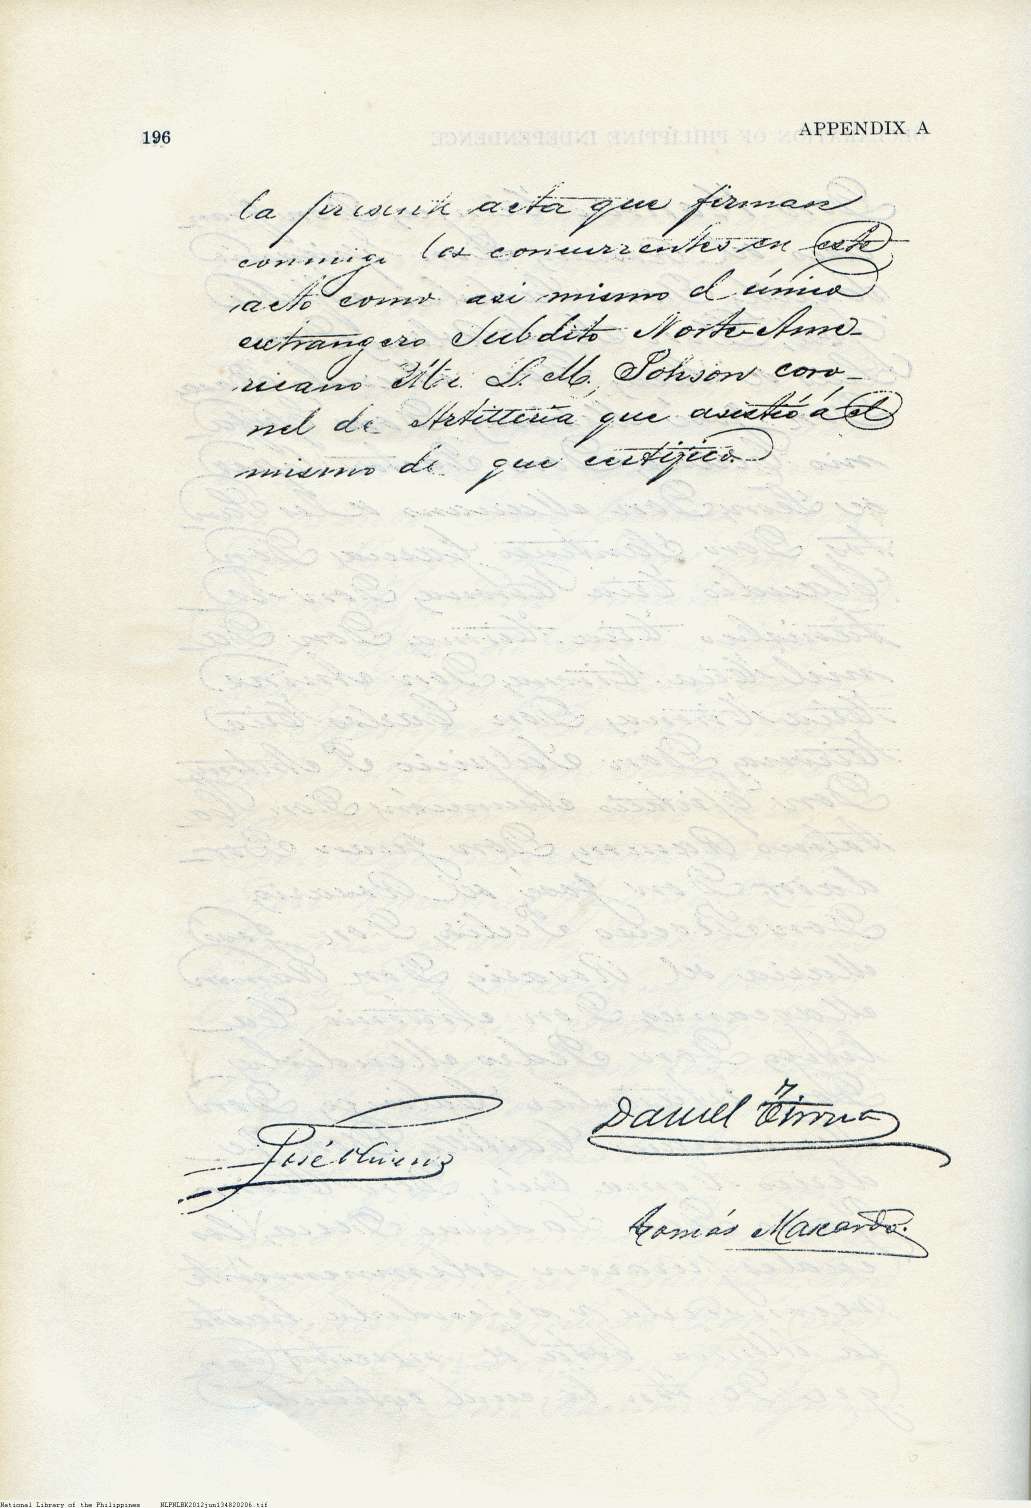 196
APPENDIX A
la presente acta que firman
conmigo los concurrentes en este
acto como asi mismo el único
extrangero Subdito Norte-Ame-
ricano Mr. L. M. Johson coro-
nel de Artilleria que asistió á el
mismo de que certifico.
Daniel Tirona
José
Tomás Mascardo.
National Library of the Philippines NLPNLBK2012jun134820206.tif